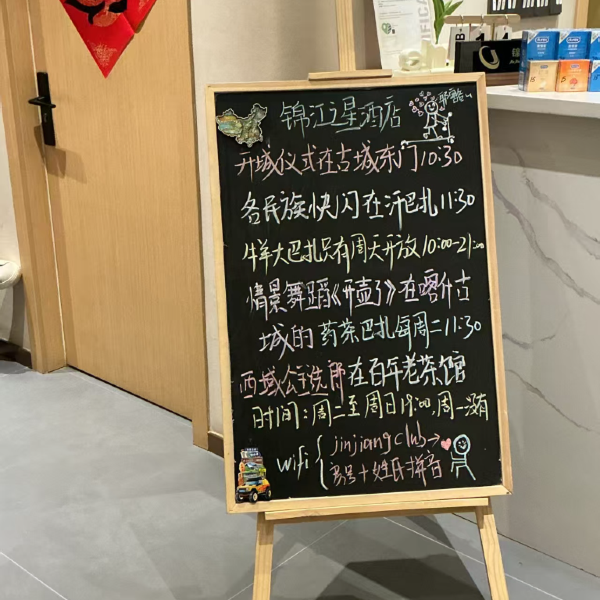 锦江之星酒店
开城仪式在古城东门10:30
各民族快闪在汗巴扎11:30
牛羊大巴扎只有周天开放10:00-21:00
情景舞蹈《开壶了》在喀什古
城的药茶巴扎每周二11:30
西域公主选郎在百年老茶馆
时间:周二至周日19:00,周一没有
wifi { jinjiangclub→
房号+姓氏拼音